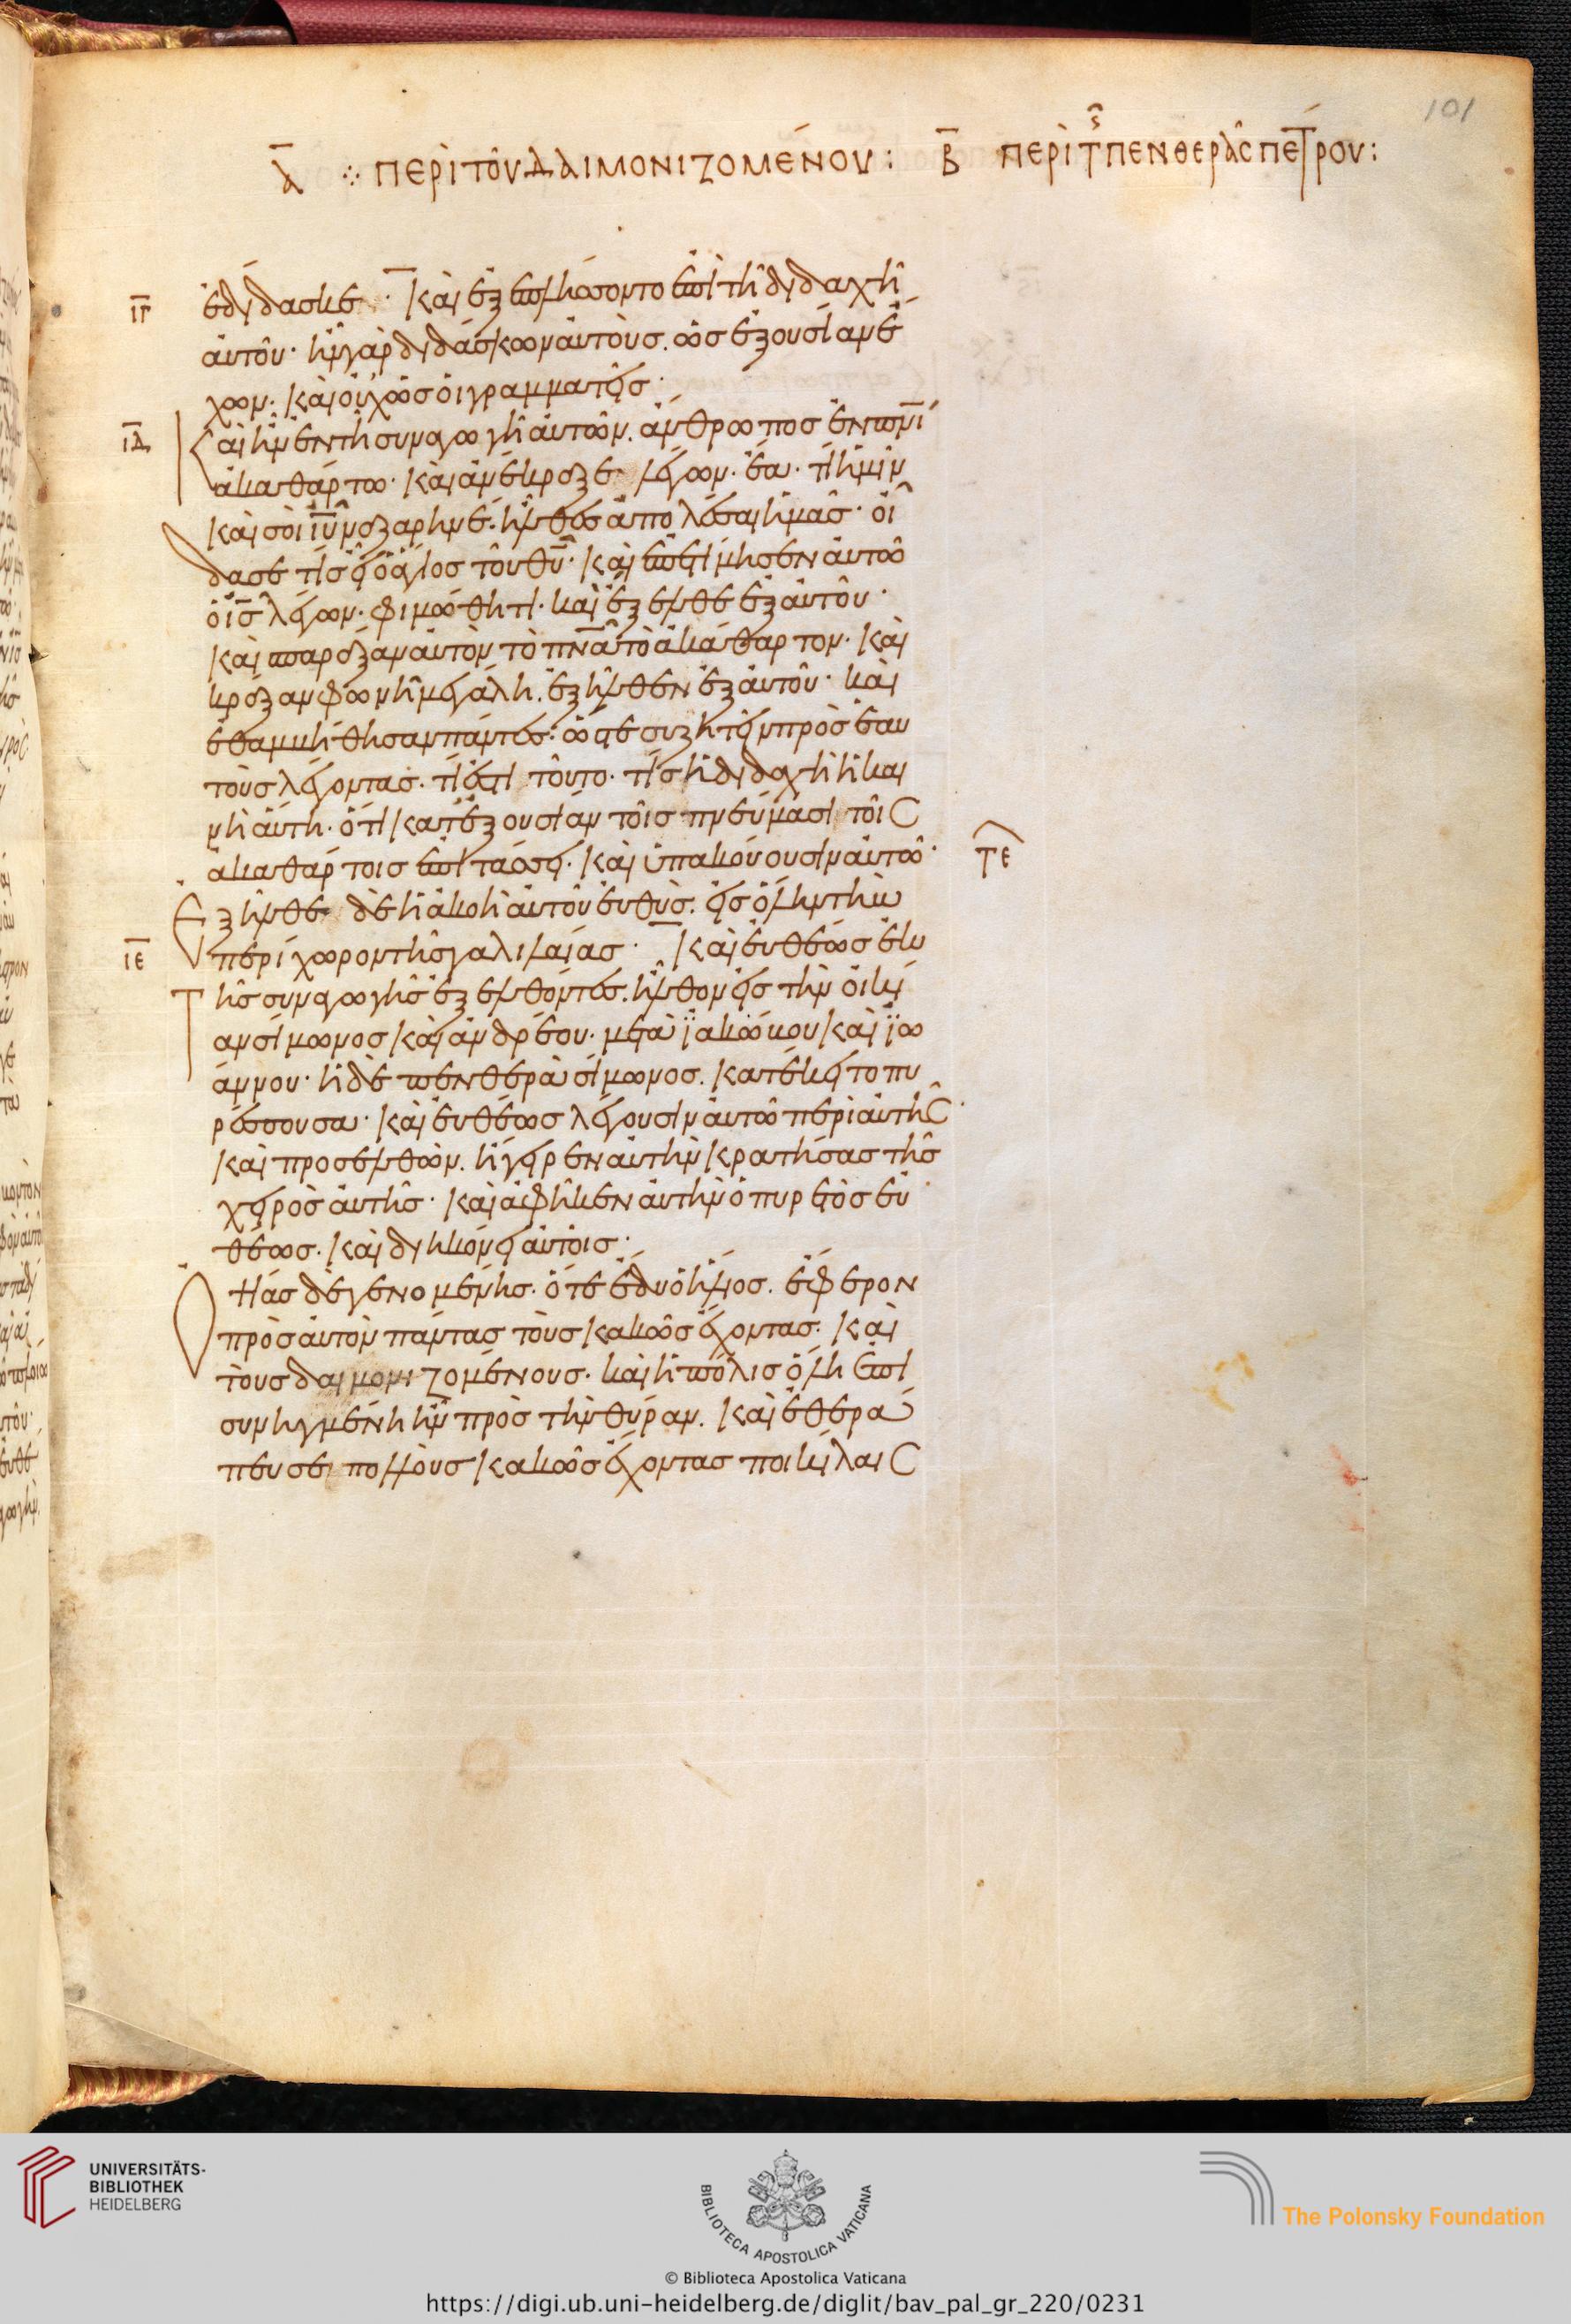 101
Α ⁘ ΠΕΡῚ ΤΟῦ ΔΑΙΜΟΝΙΖΟΜΈΝΟΥ: Β ΠΕΡῚ Τῆς ΠΕΝΘΕΡᾶς ΠΈΤΡΟΥ:
ΙΓ ἐδίδασκε· καὶ ἐξεπλήσσοντο ἐπὶ τῆ διδαχῆ
αὐτοῦ· ἦν γὰρ διδάσκων αὐτοὺς. ὡς ἐξουσίαν ἔ
χων· καὶ οὐχ ὡς οἱ γραμματεῖς·
ΙΔ Καὶ ἦν ἐν τῆ συναγωγῆ αὐτῶν. ἄνθρωπος ἐν πνι
ἀκαθάρτω· καὶ ἀνέκραξε λέγων· ἔα· τί ἡμῖν
καὶ σοὶ ιυ ναζαρηνέ· ἦλθες ἀπολέσαι ἡμᾶς· οἶ
δα σε τίς εἶ ὁ ἅγιος τοῦ θυ· καὶ ἐπετίμησεν αὐτῶ
ὁ ις λέγων· φιμώθητι· καὶ ἔξελθε ἐξ αὐτοῦ·
καὶ σπαράξαν αὐτὸν τὸ πνα τὸ ἀκάθαρτον· καὶ
κράξαν φωνῆ μεγάλη. ἐξῆλθεν ἐξ αὐτοῦ· καὶ
ἐθαμβήθησαν πάντες· ὥστε συζητεῖν πρὸς ἑαυ
τοὺς λέγοντας· τί ἐστι τοῦτο· τίς ἡ διδαχὴ ἡ και
νὴ αὕτη· ὅτι κατ' ἐξουσίαν τοῖς πνεύμασι τοῖς
ἀκαθάρτοις ἐπιτάσσει· καὶ ὑπακούουσιν αὐτῶ· ΤΕ
Ἐξῆλθε δὲ ἡ ἀκοὴ αὐτοῦ εὐθὺς. εἰς ὅλην τὴν
ΙΕ περίχωρον τῆς γαλιλαίας· καὶ εὐθέως ἐκ
τῆς συναγωγῆς ἐξελθόντες. ἦλθον εἰς τὴν οἰκί
αν σίμωνος καὶ ἀνδρέου· μετὰ ϊακώβου καὶ ϊω
άννου· ἡ δὲ πενθερὰ σίμωνος. κατέκειτο πυ
ρέσσουσα· καὶ εὐθέως λέγουσιν αὐτῶ περὶ αὐτῆς·
καὶ προσελθὼν. ἤγειρεν αὐτὴν κρατήσας τῆς
χειρὸς αὐτῆς· καὶ ἀφῆκεν αὐτὴν ὁ πυρετὸς εὐ
θέως· καὶ διηκόνει αὐτοῖς·
Ὀψίας δὲ γενομένης· ὅτε ἔδυ ὁ ἥλιος. ἔφερον
πρὸς αὐτὸν πάντας τοὺς κακῶς ἔχοντας· καὶ
τοὺς δαιμονιζομένους· καὶ ἡ πόλις ὅλη ἐπι
συνηγμένη ἦν πρὸς τὴν θύραν. καὶ ἐθερά
πευσε πολλοὺς κακῶς ἔχοντας ποικίλαις
UNIVERSITÄTS-
BIBLIOTHEK
HEIDELBERG
BIBLIOTECA APOSTOLICA VATICANA
The Polonsky Foundation
© Biblioteca Apostolica Vaticana
https://digi.ub.uni-heidelberg.de/diglit/bav_pal_gr_220/0231